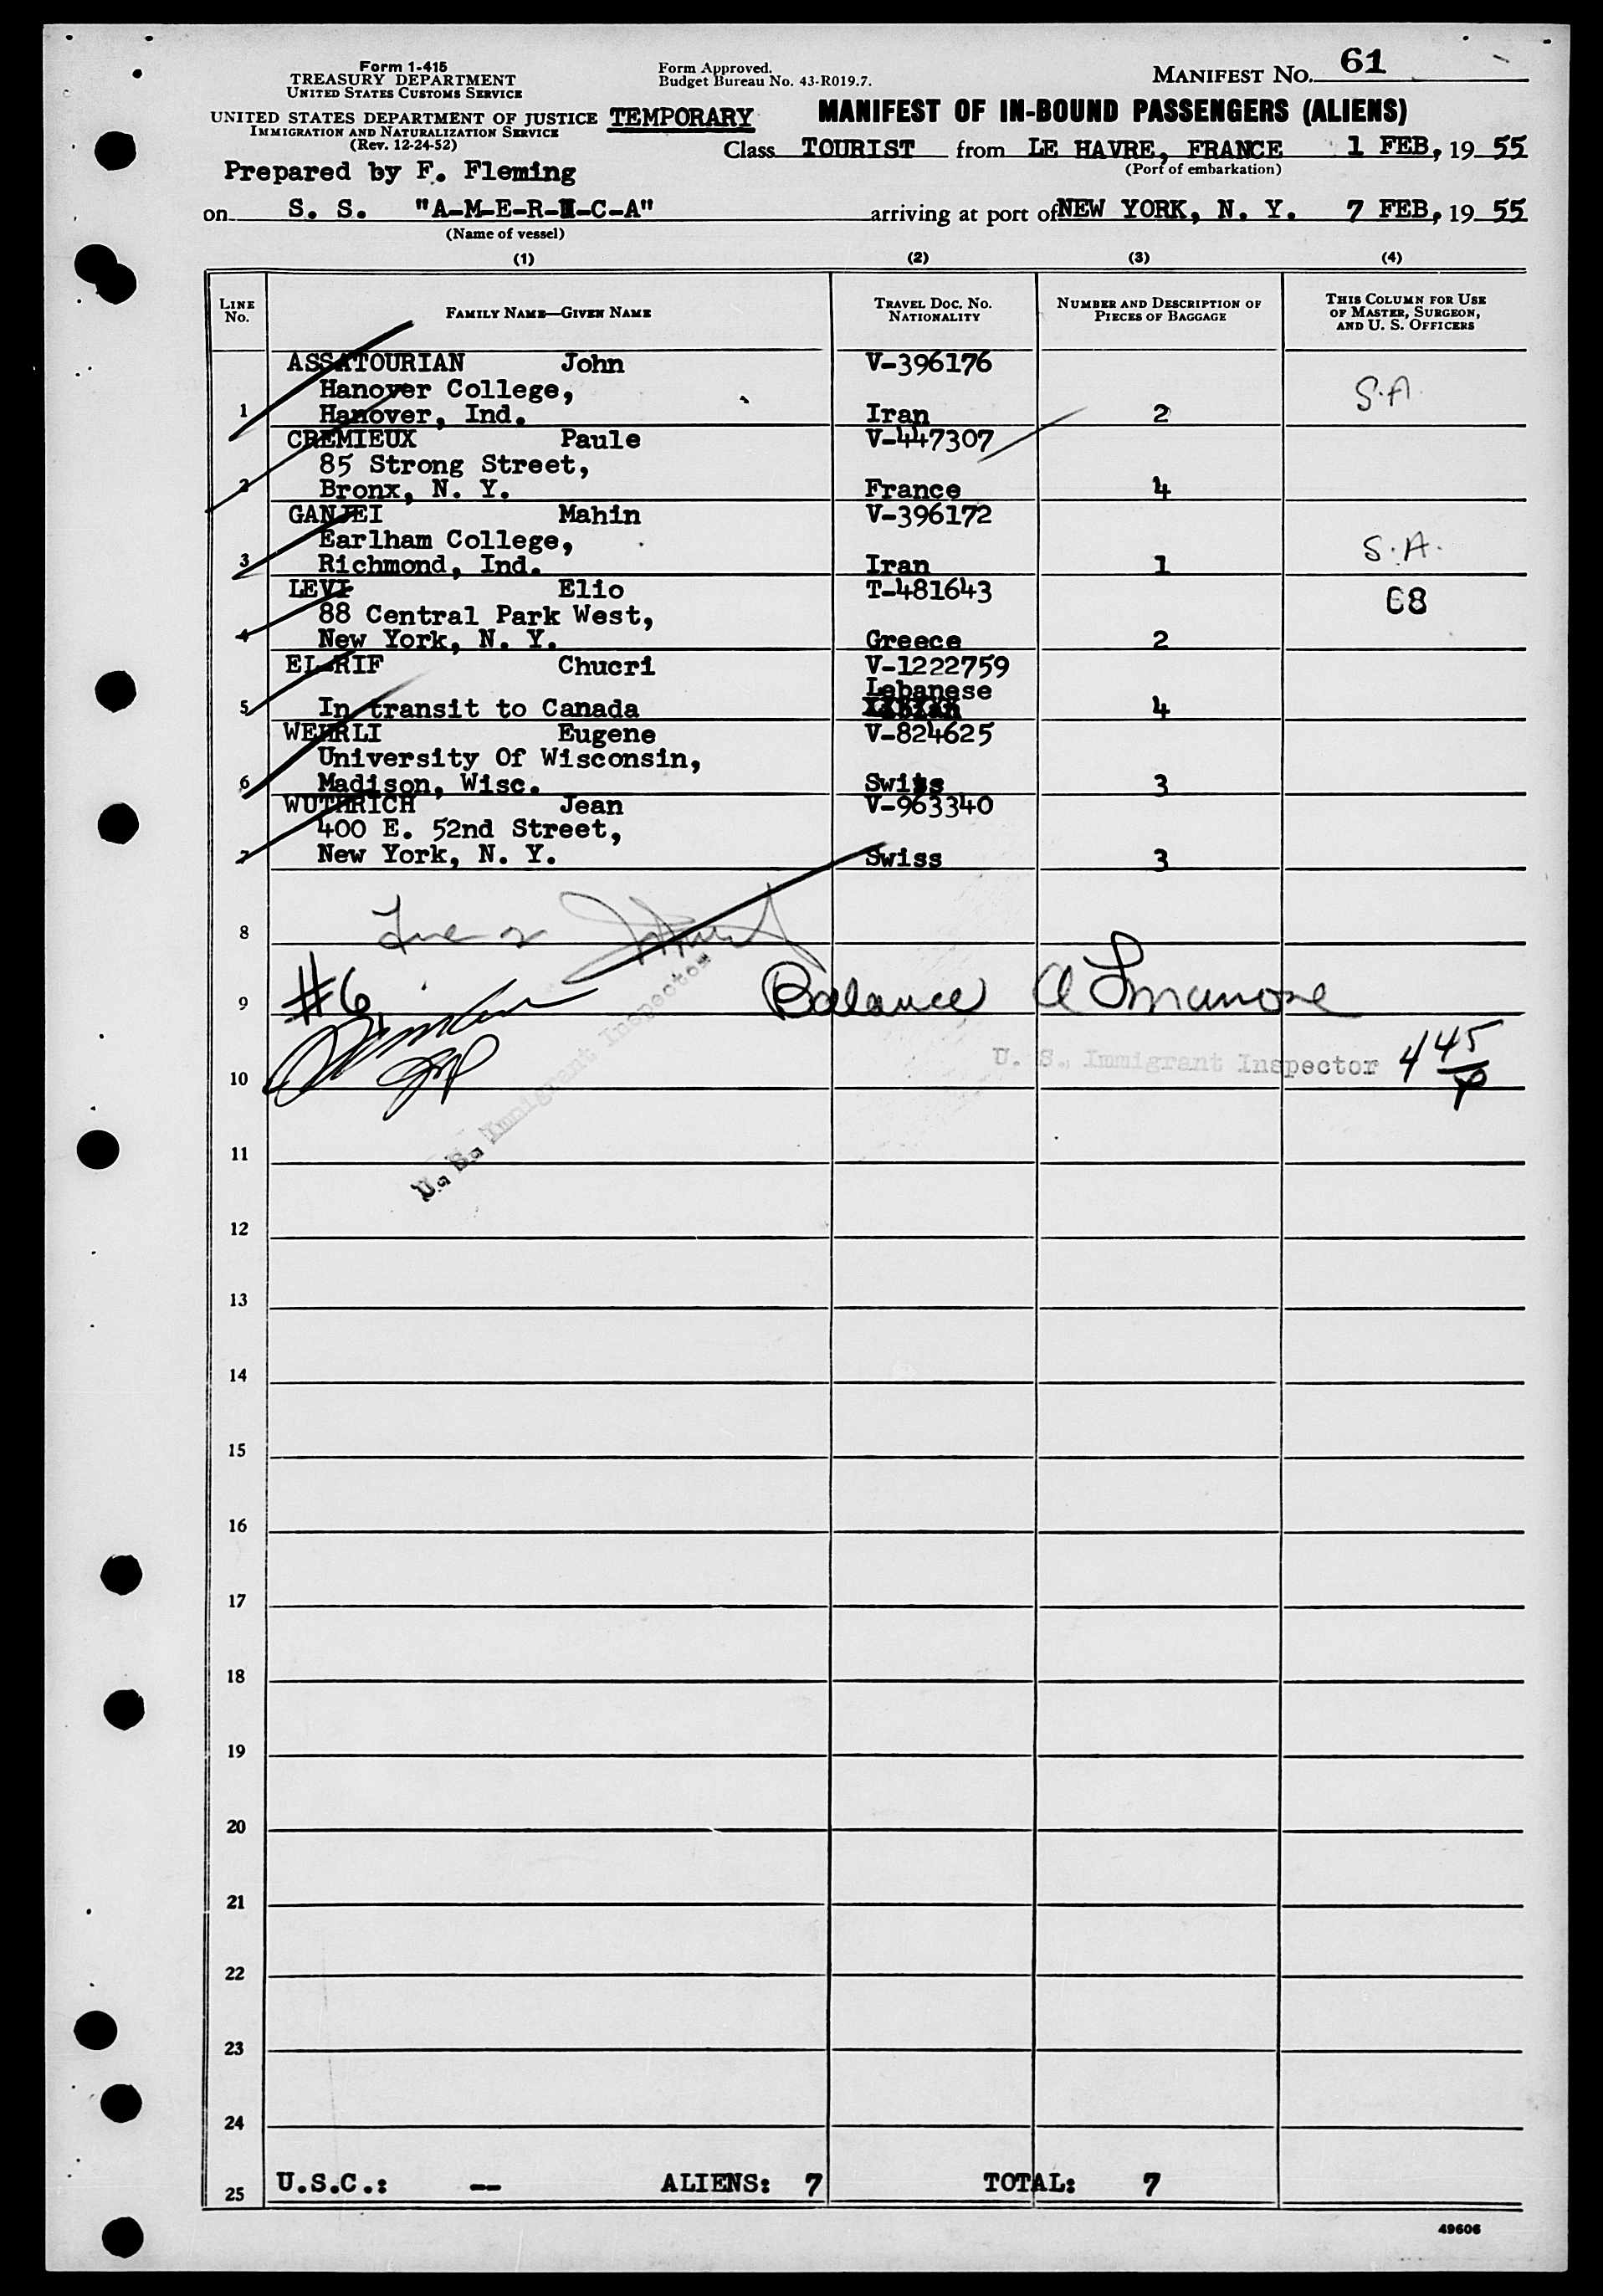 Form 1-415
TREASURY DEPARTMENT
UNITED STATES CUSTOMS SERVICE
UNITED STATES DEPARTMENT OF JUSTICE
IMMIGRATION AND NATURALIZATION SERVICE
(Rev. 12-24-52)
Form Approved.
Budget Bureau No. 43-R019.7.
MANIFEST No. 61
TEMPORARY
MANIFEST OF IN-BOUND PASSENGERS (ALIENS)
Class TOURIST from LE HAVRE, FRANCE 1 FEB, 19 55
(Port of embarkation)
Prepared by F. Fleming
on S. S. "A-M-E-R-I-C-A" arriving at port of NEW YORK, N. Y. 7 FEB, 19 55
(Name of vessel)
(1) (2) (3) (4)
LINE No. FAMILY NAME—GIVEN NAME TRAVEL DOC. NO. NATIONALITY NUMBER AND DESCRIPTION OF PIECES OF BAGGAGE THIS COLUMN FOR USE OF MASTER, SURGEON, AND U. S. OFFICERS
ASSATOURIAN John V-396176
Hanover College, S.A.
1 Hanover, Ind. Iran 2
CREMIEUX Paule V-447307
85 Strong Street,
2 Bronx, N. Y. France 4
GANJEI Mahin V-396172
Earlham College, S.A.
3 Richmond, Ind. Iran 1
LEVI Elio T-481643 68
88 Central Park West,
4 New York, N. Y. Greece 2
EL-RIF Chucri V-1222759
Lebanese
5 In transit to Canada 4
WEHRLI Eugene V-824625
University Of Wisconsin,
6 Madison, Wisc. Swiss 3
WUTHRICH Jean V-963340
400 E. 52nd Street,
7 New York, N. Y. Swiss 3
8
9 #6 Balance
U. S. Immigrant Inspector
10 U. S. Immigrant Inspector 445
11
12
13
14
15
16
17
18
19
20
21
22
23
24
25 U.S.C.: -- ALIENS: 7 TOTAL: 7
49606